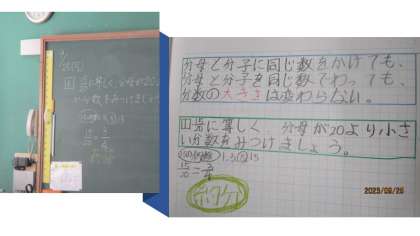 1 15/20に等しく、分母が20よ
い分数をみつけましょう
15/20 = 3/4
分母と分子に同じ数をかけても、
分母と分子を同じ数でわっても、
分数の大きさは変わらない。
1 15/20に等しく、分母が20より小さ
い分数をみつけましょう。
15/20 = 3/4
約分
2025/09/26